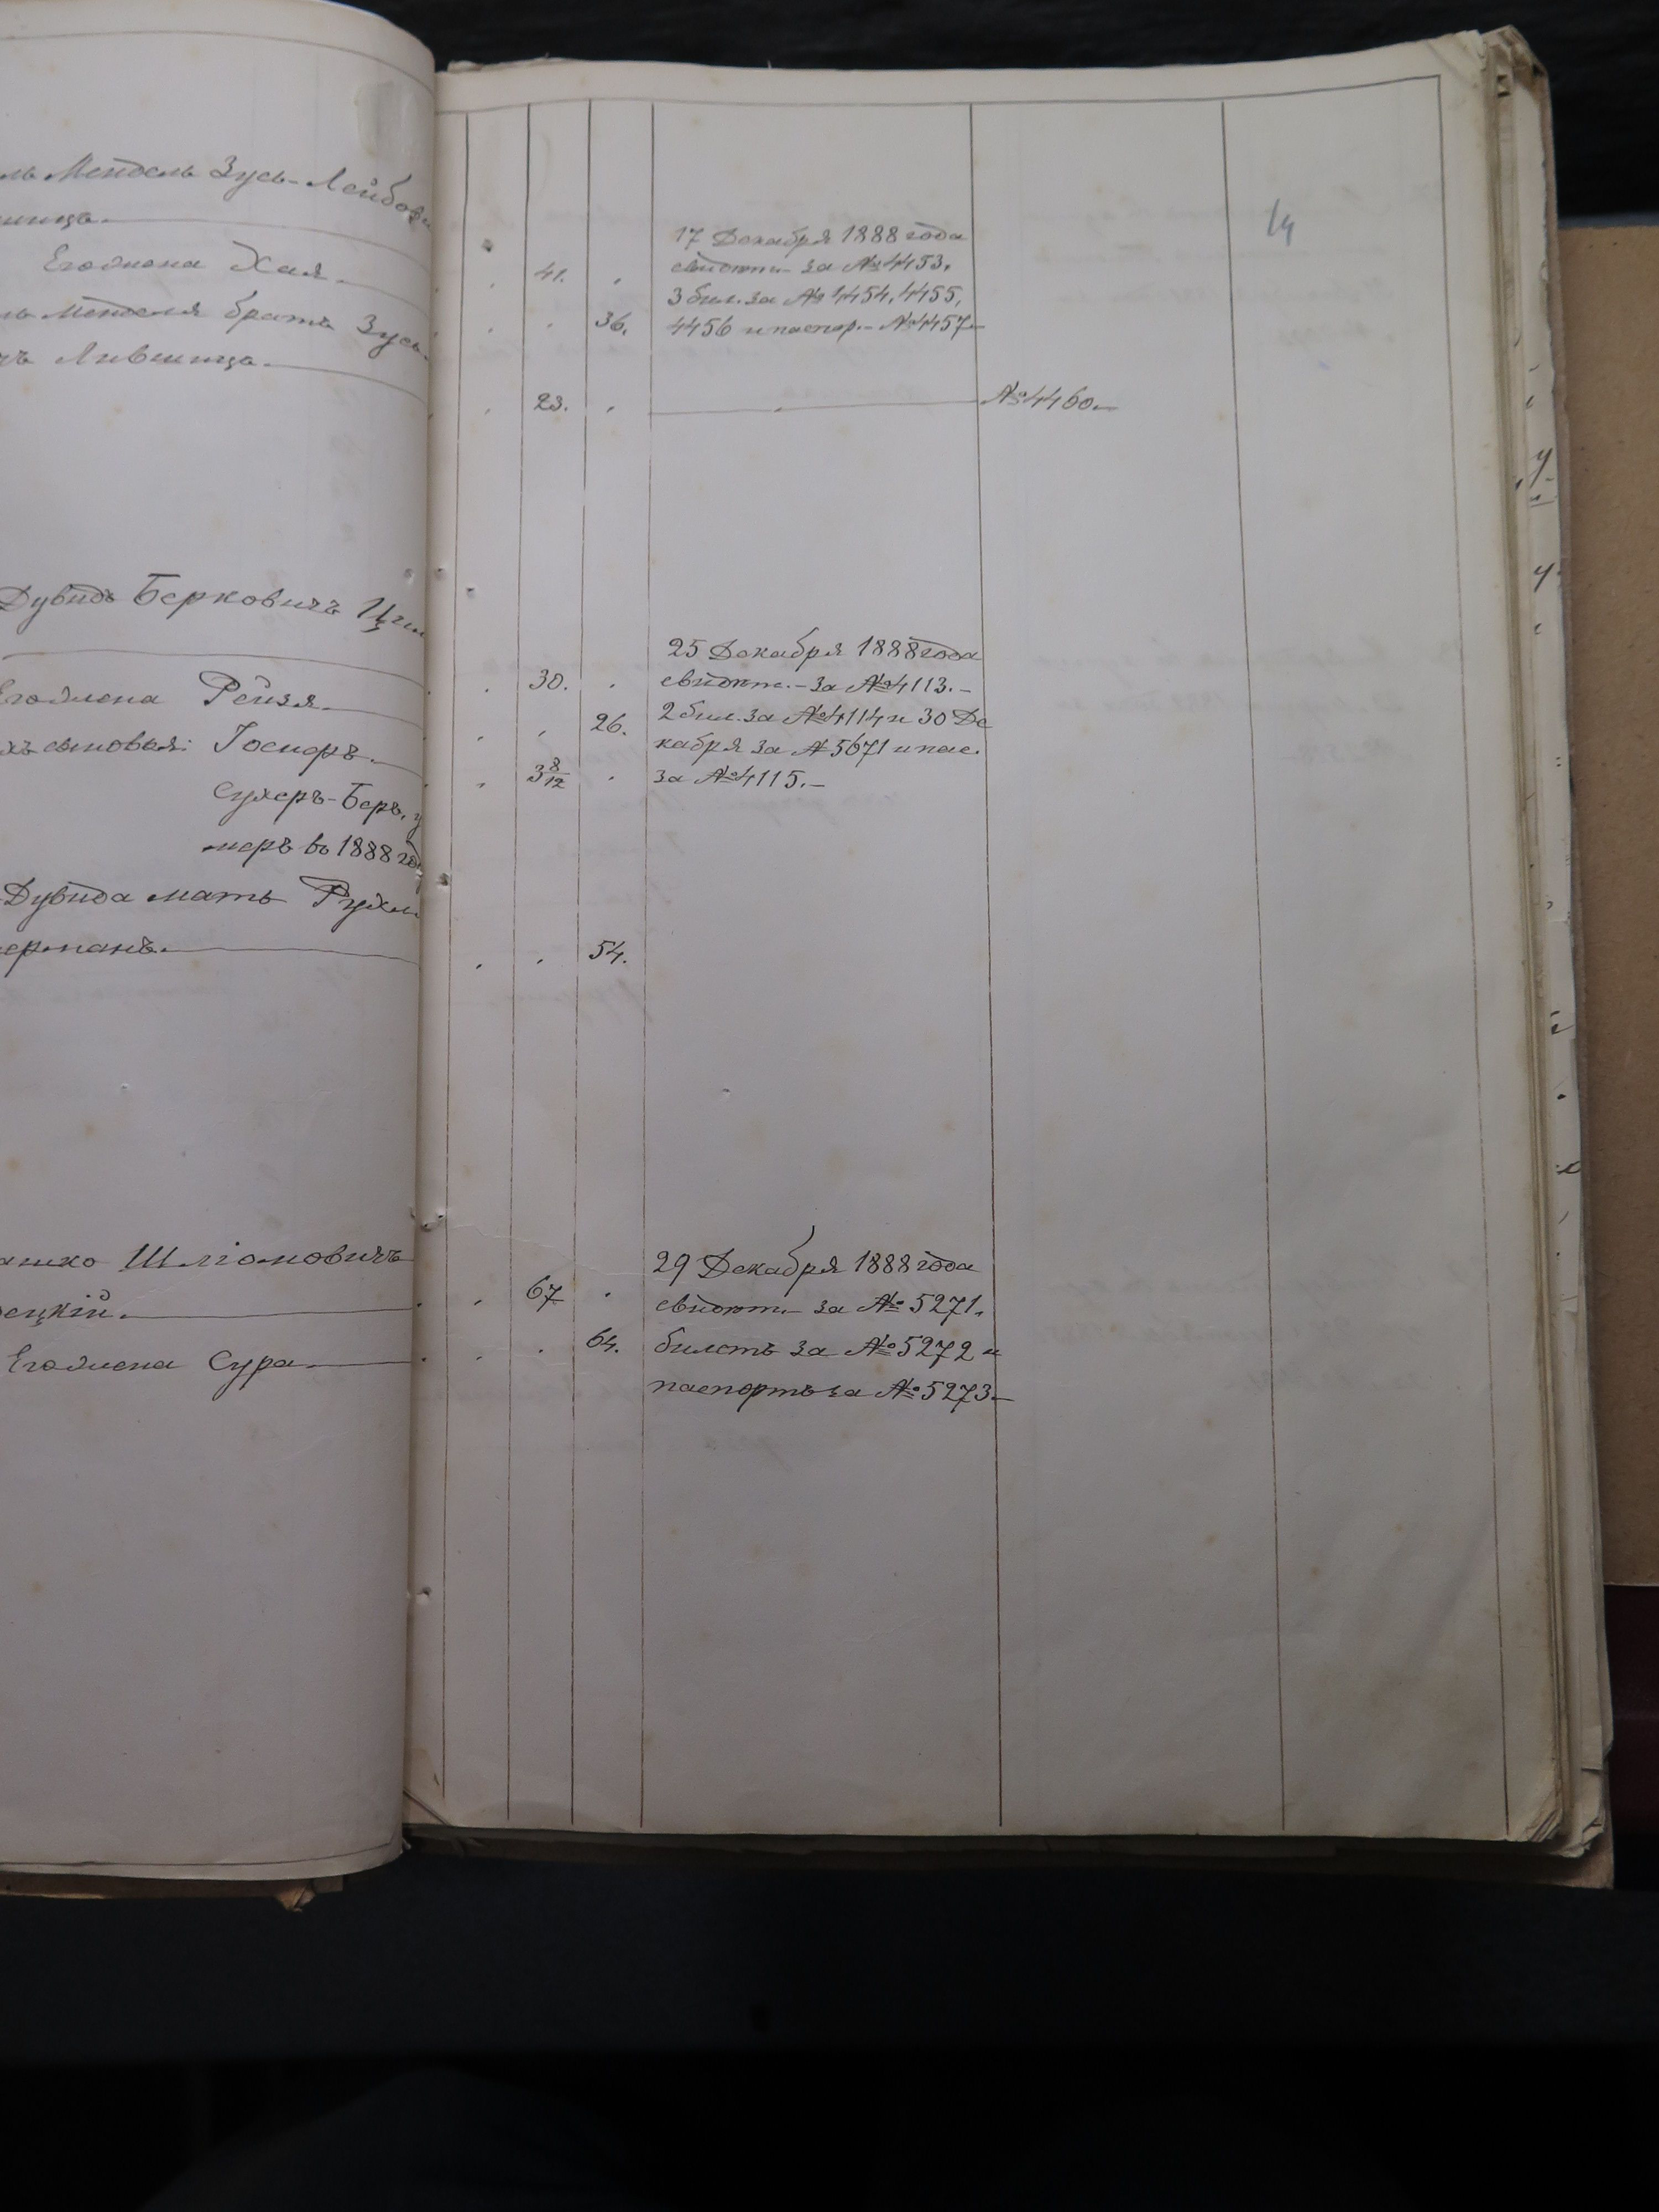 ль Мендель Зусь-Лейбови
шица.
Его жена Хая.
ль Менделя братъ Зусь-
чъ Лившицъ.
Дувидъ Берковичъ Цим
Его жена Рейзя.
ихъ сыновья: Iосифъ.
Сухеръ-Беръ, у
меръ въ 1888 год
Дувида мать Рухля
ерманъ.
ашко Шліомовичъ
ецкій.
Его жена Сура
14
17 Декабря 1888 года
41. свидѣт.- за №4453.
3 бил. за № 4454, 4455,
36. 4456 и паспор.- №4457-
23. №4460.-
25 Декабря 1888 года
30. свидѣт.- за №4113.-
26. 2 бил. за №4114 и 30 Де
кабря за № 5671 и пас.
3 8/12 за №4115.-
54.
29 Декабря 1888 года
67 свидѣт.- за № 5271.
64. билетъ за №5272 и
паспортъ за №5273.-